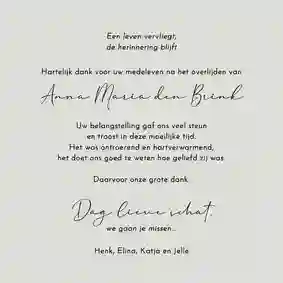 Een leven vervliegt,
de herinnering blijft
Hartelijk dank voor uw medeleven na het overlijden van
Anna Maria den Brink
Uw belangstelling gaf ons veel steun
en troost in deze moeilijke tijd.
Het was ontroerend en hartverwarmend,
het doet ons goed te weten hoe geliefd zij was.
Daarvoor onze grote dank.
Dag lieve schat,
we gaan je missen...
Henk, Elina, Katja en Jelle